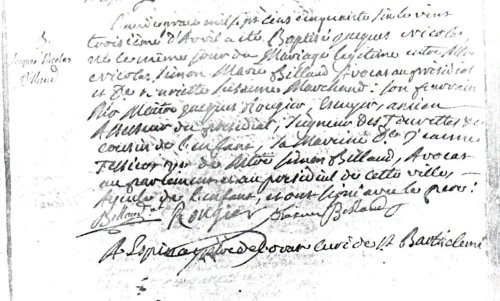 Jacques Nicolas
Billaud
L'an de grace mil sept cens cinquante six le vint
troisième d'Avril a été Baptisé Jacques Nicolas,
né le même jour du Mariage légitime entre Me
Nicolas Simon Marie Billaud Avocat au présidial
et De Henriette Suzanne Marchand: son parrain
Maitre Jacques Rougier, Ecuyer, ancien
Assesseur du présidial, Seigneur des Tourettes
cousin de l'enfant, sa Maraine Dlle Jeanne
Tessier de Mtre Simon Billaud, Avocat
au parlement et au présidial de cette ville
Ayeule de l'enfant, et ont signé avec le pere:
Billaud Rougier Billaud
curé de St Barthelemi